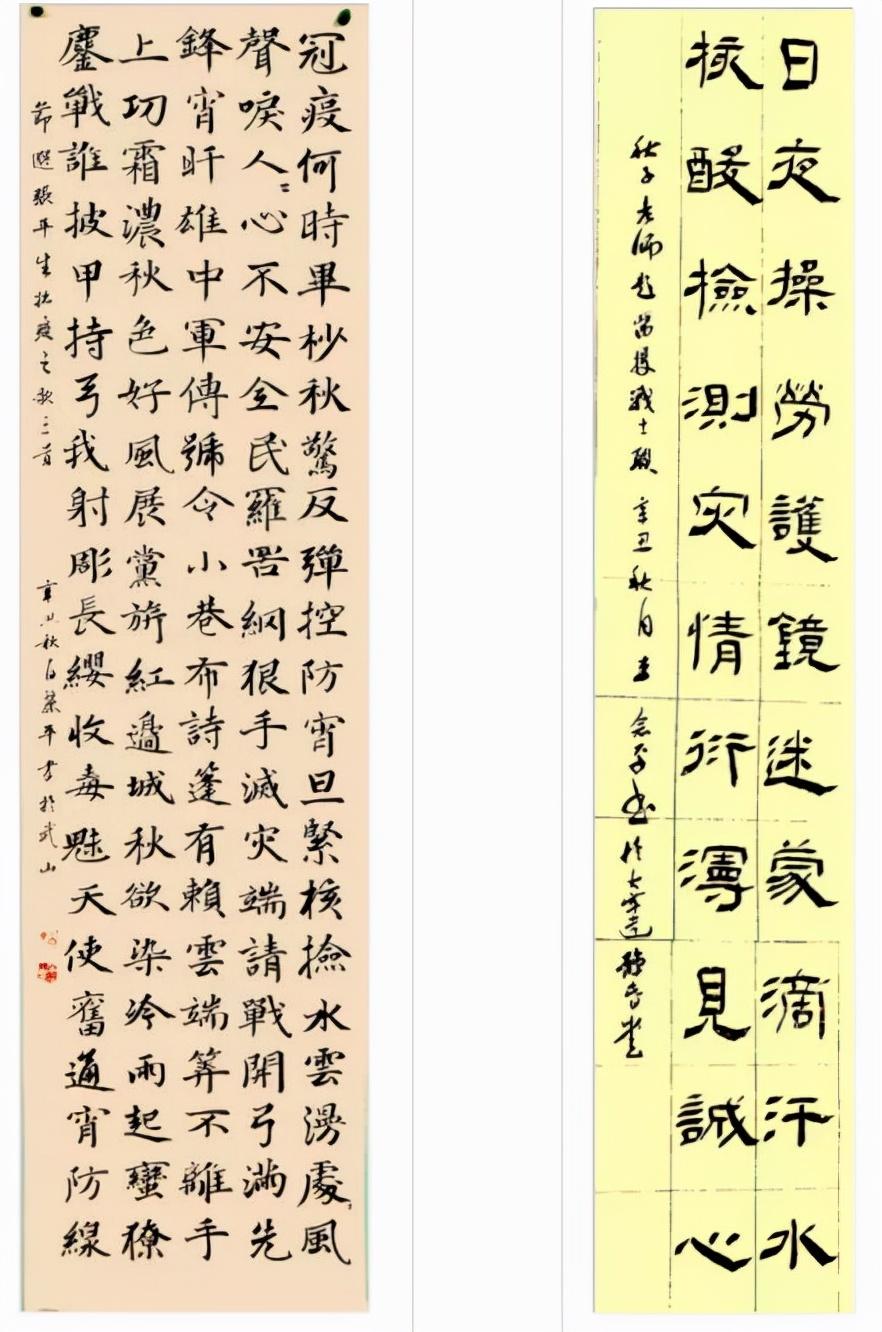 冠疫何時畢杪秋驚反彈控防宵旦緊核撿水雲漫處〻風
聲唳人〻心不安全民羅罟網狠手滅灾端請戰開弓滿先
鋒宵旰雄中軍傳號令小巷布詩篷有賴雲端筭不離手
上切霜濃秋色好風展黨旂紅邊城秋欲染冷雨起蠻獠
鏖戰誰披甲持弓我射彫長纓收毒魅天使奮通宵防線
節選張平生抗疫之歌三首 辛丑秋月榮平書於武山
日夜操勞護鏡迷蒙滴汗水
核酸撿測灾情行見誠心
秋子老師題援戰士聯 辛丑秋月 書於